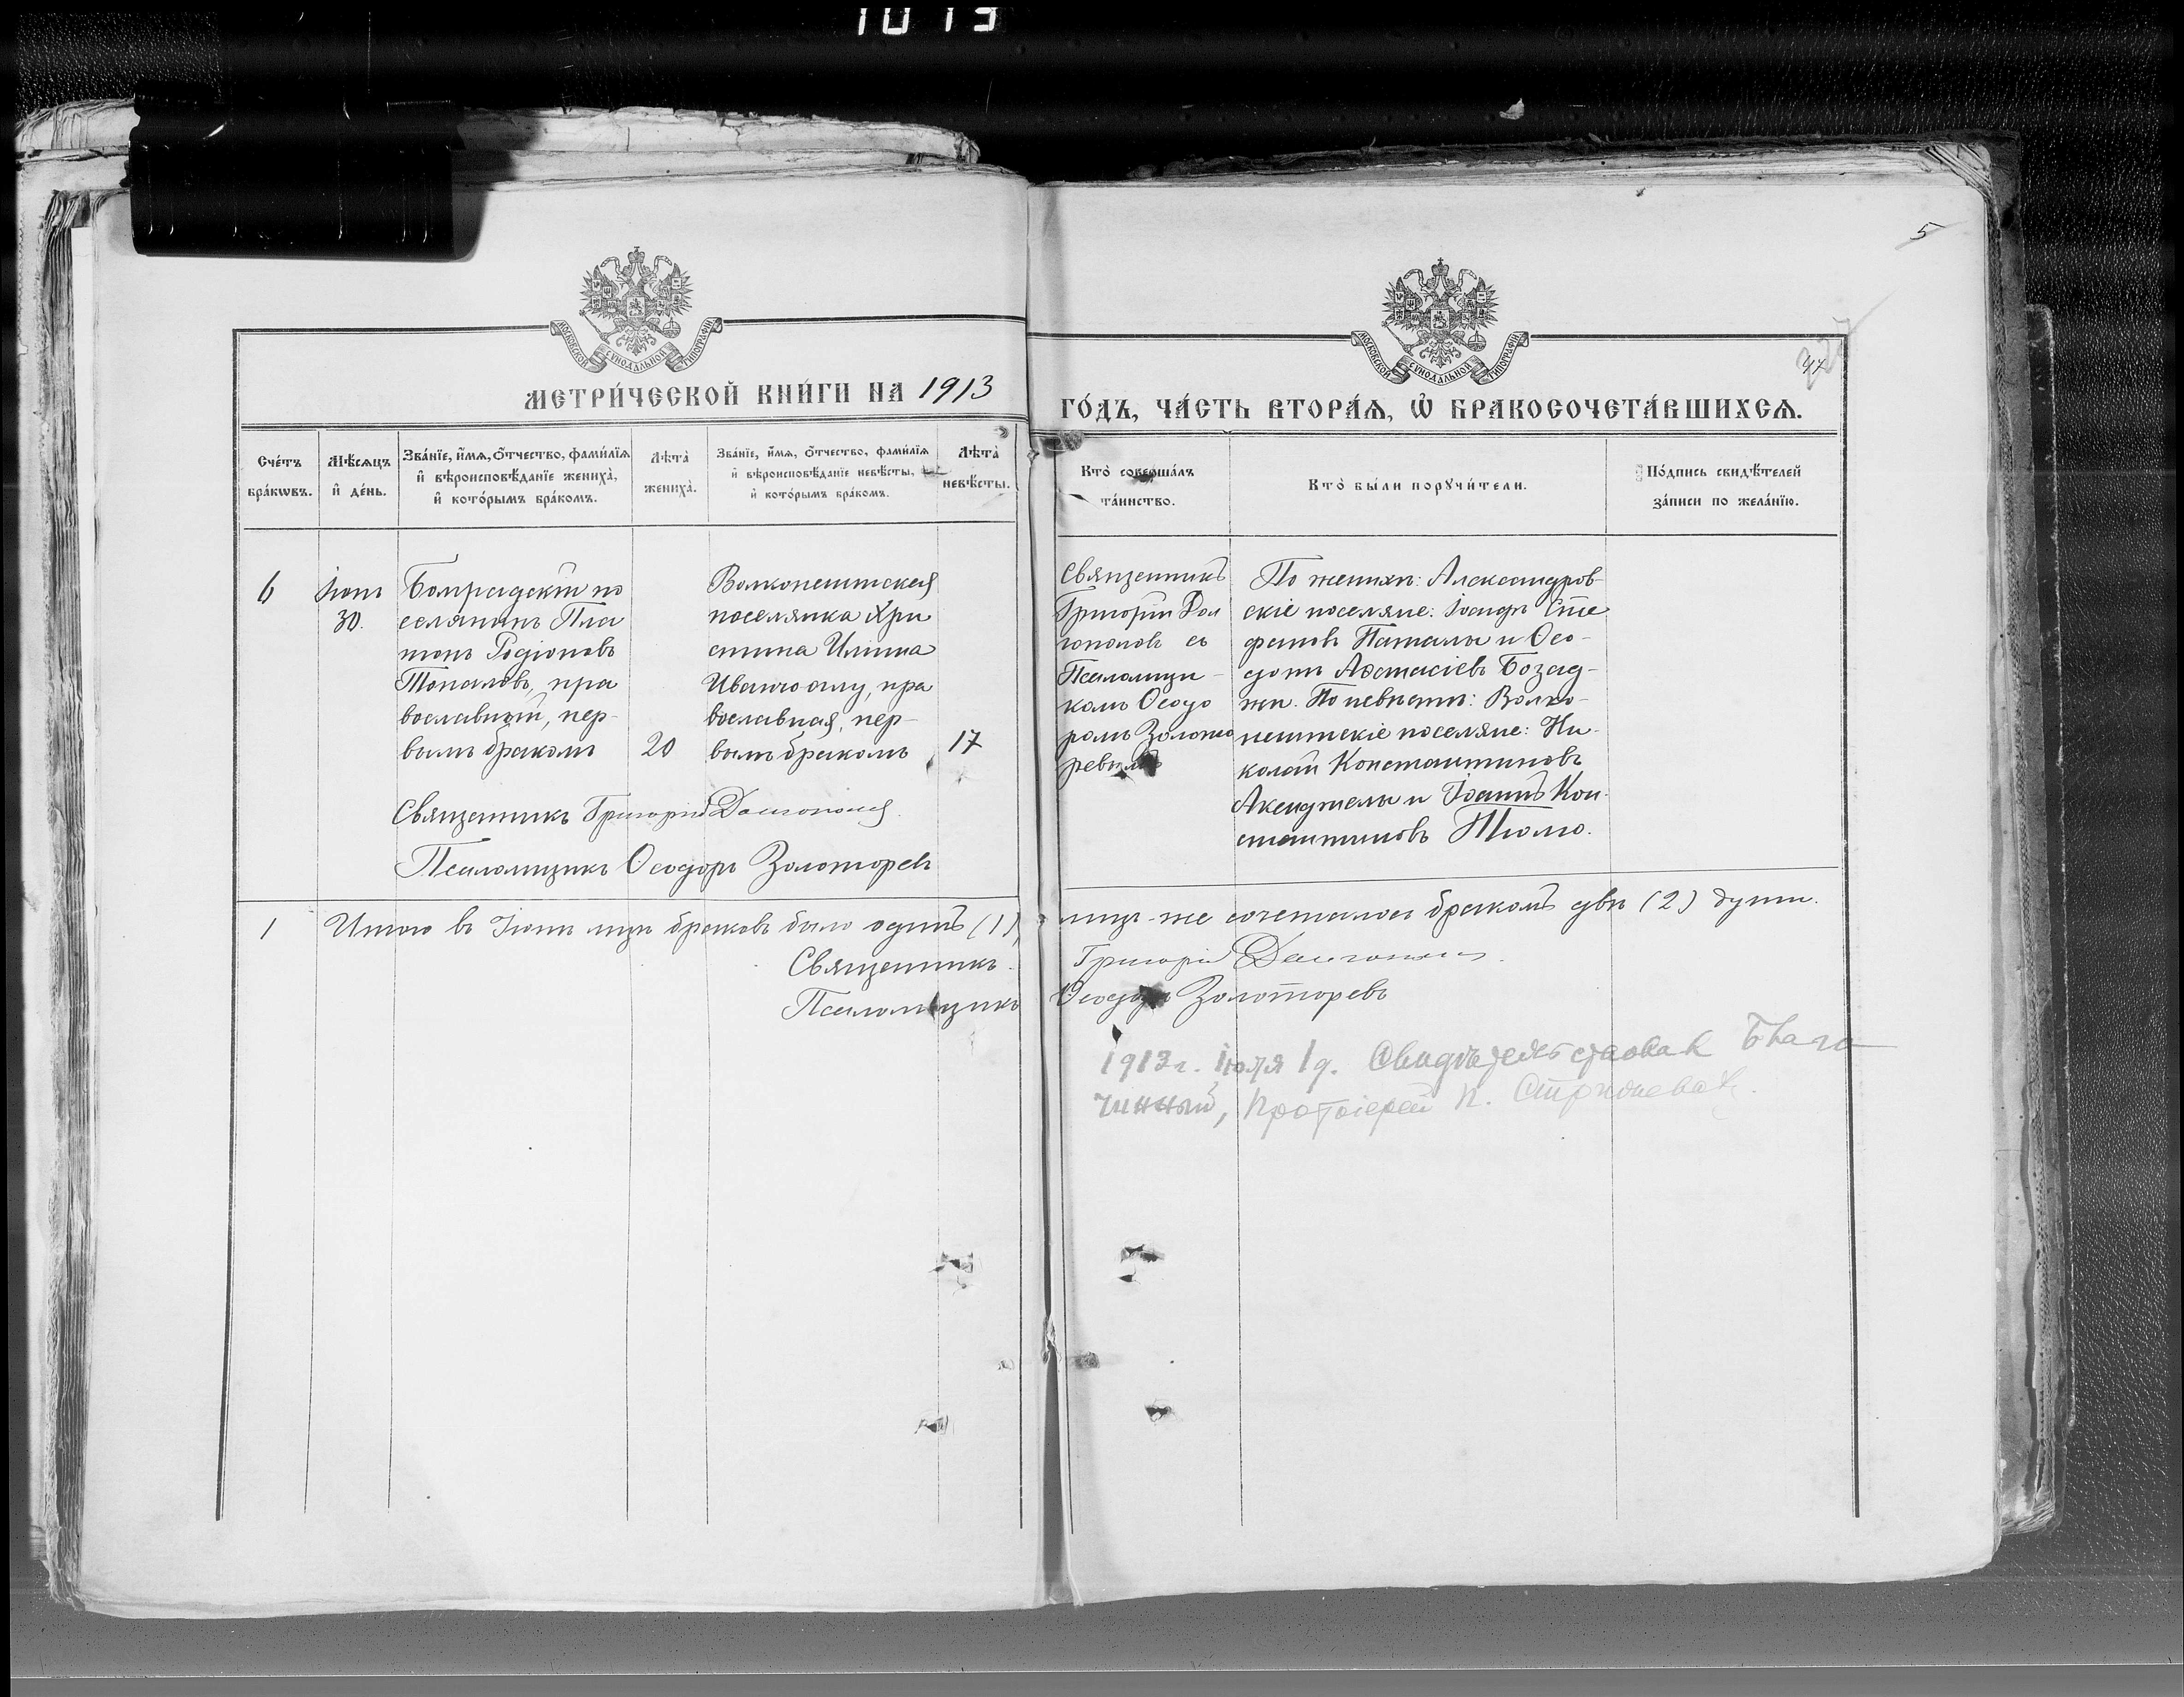 1013
5
МОСКОВСКОЙ СѴНОДАЛЬНОЙ ТИПОГРАФІИ
МОСКОВСКОЙ СѴНОДАЛЬНОЙ ТИПОГРАФІИ
47
МЕТРИ́ЧЕСКОЙ КНИ́ГИ НА 1913
ГО́ДЪ, ЧА́СТЬ ВТОРА́Ѧ, Ѡ҆ БРАКОСОЧЕТА́ВШИХСѦ.
Сче́тъ бра́кωвъ.
Мѣ́сѧцъ и҆ де́нь.
Зва́нїе, и҆́мѧ, ѻ҆́тчество, фами́лїѧ
и҆ вѣроисповѣ́данїе жениха̀,
и҆ кото́рымъ бра́комъ.
Лѣта̀ жениха̀.
Зва́нїе, и҆́мѧ, ѻ҆́тчество, фами́лїѧ
и҆ вѣроисповѣ́данїе невѣ́сты,
и҆ кото́рымъ бра́комъ.
Лѣта̀ невѣ́сты.
Кто̀ соверша́лъ
та́инство.
Кто̀ бы́ли порꙋчи́тели.
По́дпись свидѣ́телей
за́писи по жела́нїю.
6
Іюнь
30.
Болградскій по
селянинъ Пла
тонъ Родіоновъ
Топаловъ, пра
вославный, пер-
вымъ бракомъ
20
Волконештская
поселянка Хри
стина Илиина
Иваноглу, пра
вославная, пер-
вымъ бракомъ
17
Священникъ
Григорій Дол
гополовъ съ
Псаломщи-
комъ Ѳеодо
ромъ Золото
ревымъ
По женихѣ: Александров-
скіе поселяне: Іосифъ Сте
фановъ Паталы и Ѳео-
дотъ Аѳанасіевъ Бозад-
жи. По невѣстѣ: Волко-
нештскіе поселяне: Ни-
колай Константиновъ
и Іоаннъ Кон-
стантиновъ
Священникъ Григорій Долгополовъ
Псаломщикъ Ѳеодоръ Золоторевъ
1 Итого въ Іюнѣ мцѣ браковъ было одинъ (1),
лицъ-же сочеталось бракомъ двѣ (2) души.
Священникъ Григорій Долгополовъ
Псаломщикъ Ѳеодоръ Золоторевъ
1913 г. Іюля 1 д. Свидѣтельствовалъ Благо
чинный, Протоіерей